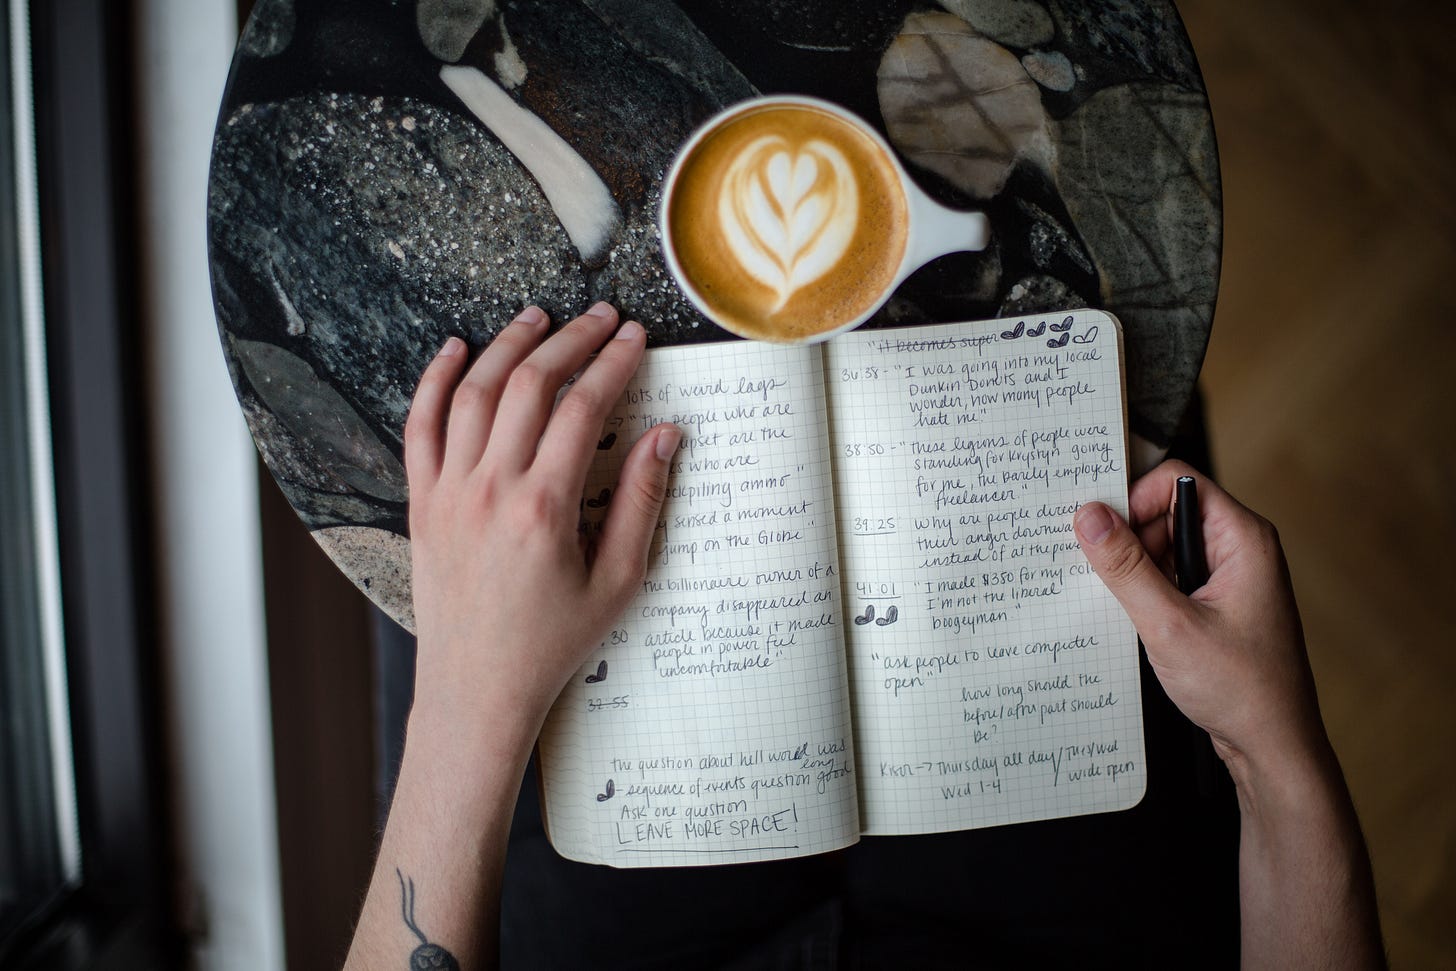 lots of weird lags
→ "the people who are
upset are the
who are
ockpiling ammo"
sensed a moment
jump on the Globe"
the billionaire owner of a
company disappeared an
.30 article because it made
people in power feel
uncomfortable"
32:55
the question about hell world was
long
- sequence of events question good
Ask one question
LEAVE MORE SPACE!
"it becomes super
36:38 - "I was going into my local
Dunkin Donuts and I
wonder, how many people
hate me"
38:50 - "these legions of people were
standing for Krystyn going
for me, the barely employed
freelancer"
39:25 why are people direct
their anger downwa
instead of at the pow
41:01 "I made $350 for my col
I'm not the liberal
boogeyman"
"ask people to leave computer
open"
how long should the
before/after part should
be?
→ Thursday all day/Tues/Wed
Wed 1-4 wide open